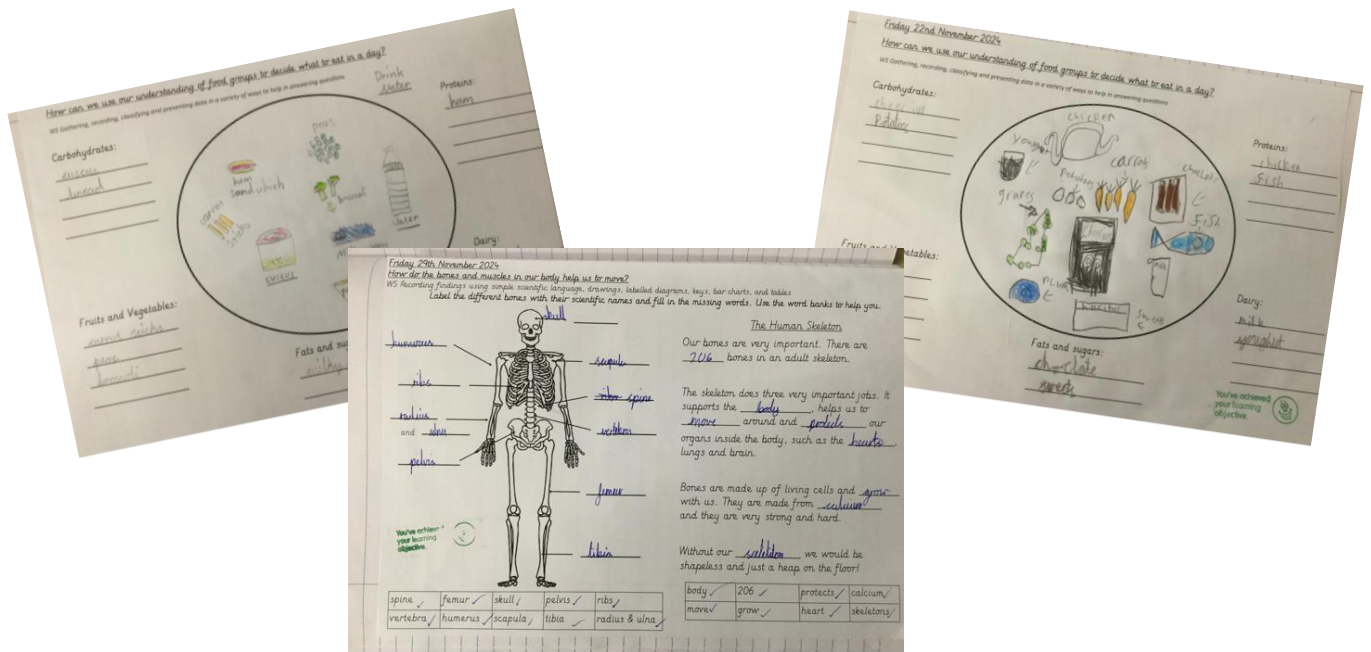 How can we use our understanding of food groups to decide what to eat in a day?
WS Gathering, recording, classifying and presenting data in a variety of ways to help in answering questions
Drink
water
Carbohydrates:
bread
Proteins:
ham
peas
ham
sandwhich
carrot
sticks
water
Dairy:
Fruits and Vegetables:
Fats and
milky
Friday 22nd November 2024
How can we use our understanding of food groups to decide what to eat in a day?
WS Gathering, recording, classifying and presenting data in a variety of ways to help in answering questions
Carbohydrates:
Proteins:
chicken
fish
chicken
carrots
grapes
fish
milk
Fats and sugars:
choclate
sweets
Dairy:
milk
You've achieved
your learning
objective.
Friday 29th November 2024
How do the bones and muscles in our body help us to move?
WS Recording findings using simple scientific language, drawings, labelled diagrams, keys, bar charts, and tables
Label the different bones with their scientific names and fill in the missing words. Use the word banks to help you.
skull
scapula
ribs
spine
radius
and ulna
vertebra
pelvis
femur
tibia
You've achieve
your learning
objective.
The Human Skeleton
Our bones are very important. There are
206 bones in an adult skeleton.
The skeleton does three very important jobs. It
supports the body, helps us to
move around and protects our
organs inside the body, such as the
lungs and brain.
Bones are made up of living cells and grow
with us. They are made from calcium
and they are very strong and hard.
Without our we would be
shapeless and just a heap on the floor!
spine femur skull pelvis ribs
vertebra humerus scapula tibia radius & ulna
body 206 protects calcium
move grow heart skeletons